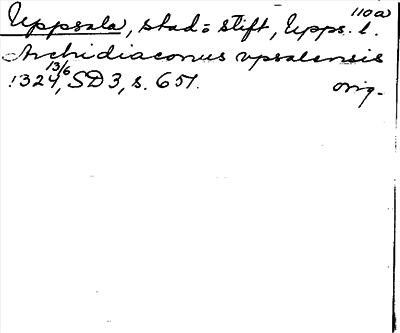 110a)
Uppsala, stad o stift, Upps. l.
Archidiaconus upsalensis
1324 13/6, SD 3, s. 651. orig.